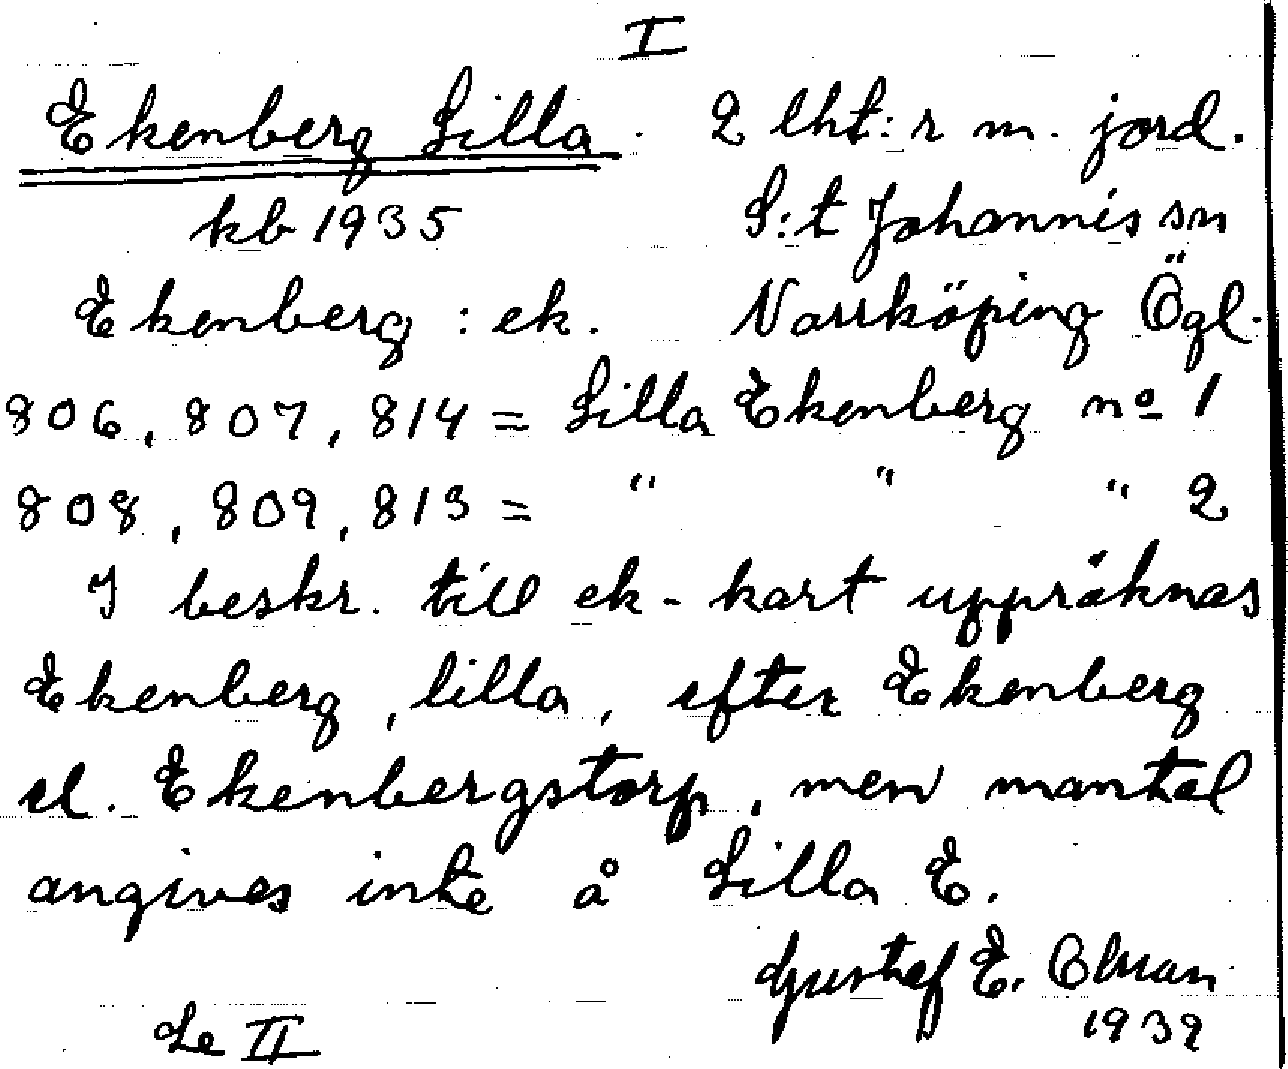 I
Ekenberg Lilla. 2 lht:r m. jord.
kb 1935 S:t Johannis sn
Ekenberg : ek. Norrköping Ögl.
806, 807, 814 = Lilla Ekenberg no 1
808, 809, 813 = " " " 2
I beskr. till ek-kart uppräknas
Ekenberg, lilla, efter Ekenberg
el. Ekenbergstorp, men mantal
angives inte å Lilla E.
Gustaf E.
1939
Se II